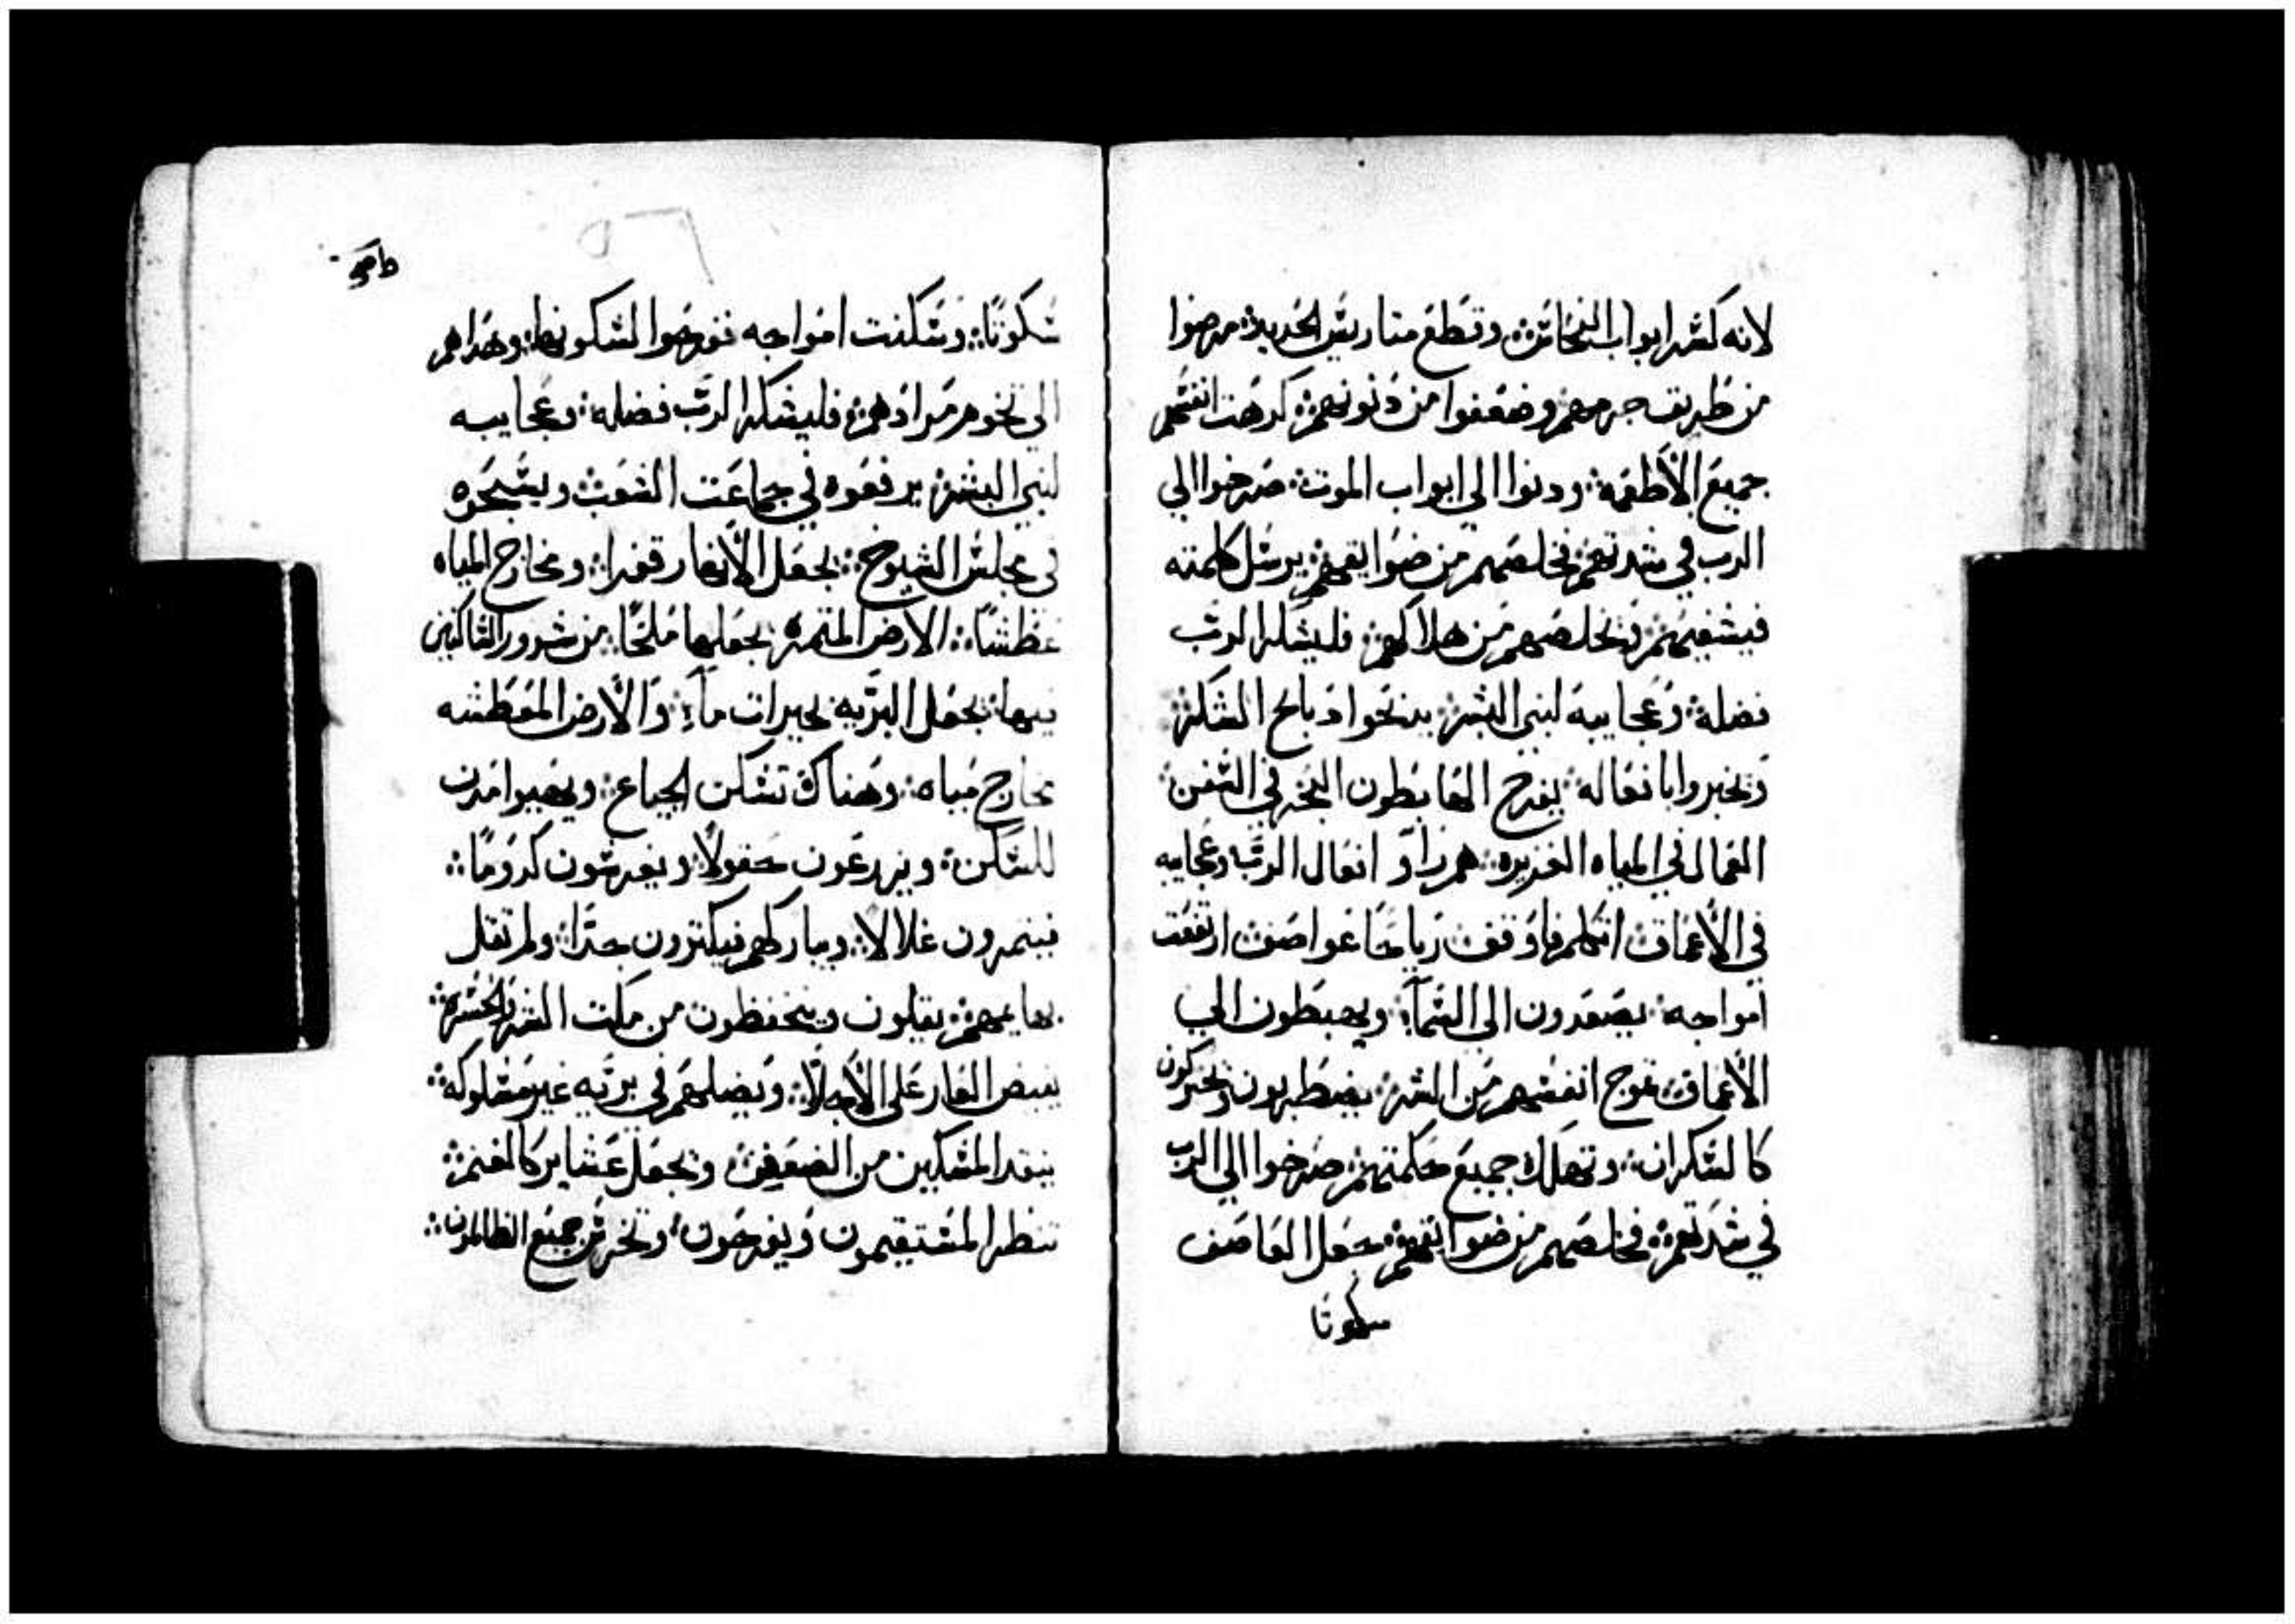 لانه كسر ابواب النحاس وقطع متاريس الحديد مرضوا
من طريق جرمهم وضعفوا من ذنوبهم كرهت انفسهم
جميع الأطعمه ودنوا الى ابواب الموت صرخوا الى
الرب في شدتهم فخلصهم من ضوايقهم يرسل كلمته
فيشفيهم ويخلصهم من هلاكهم فليشكر الرب
فضله وعجايبه لبني البشر يدبحوا دبايح الشكر
ويخبروا بافعاله بفرح الهابطون البحر في السفن
العمال في المياه الغزيره هم راو افعال الرب وعجايبه
في الأعماق اتكلم فاوقف رياحا عواصف ارتفعت
امواجه يصعدون الى السمآء ويهبطون الى
الأعماق تموج انفسهم من الشر يضطربون ويتحركون
كالسكران وتهلك جميع حكمتهم صرخوا الى الرب
في شدتهم فخلصهم من ضوايقهم جعل العاصف
سكوتا
سكوتا وسكنت امواجه ففرحوا لسكونها وهداهم
الى نحو مرادهم فليشكر الرب فضله وعجايبه
لبني البشر يرفعوه في جماعت الشعب ويسبحوه
في مجلس الشيوخ يجعل الأنهار قفرا ومخارج المياه
عطشا الارض المثمره يجعلها ملحا من شرور الساكنين
فيها يجعل البريه بحيرات مآء والأرض المعطشه
مخارج مياه وهناك تسكن الجياع ويهيوا مدن
للسكن ويزرعون حقولا ويغرسون كروما
فيتمرون غلالا ويباركهم فيكترون جدا ولم تقل
بهايمهم يقلون ويتحفظون من ملت الشر والحسره
يفيض العار على الأجلا ويضلهم في بريه غير مسلوكه
ينقد المسكين من الضعف ويجعل عشاير كالغنم
تنظر المستقيمون ويفرحون وتخرس جميع الظالمون